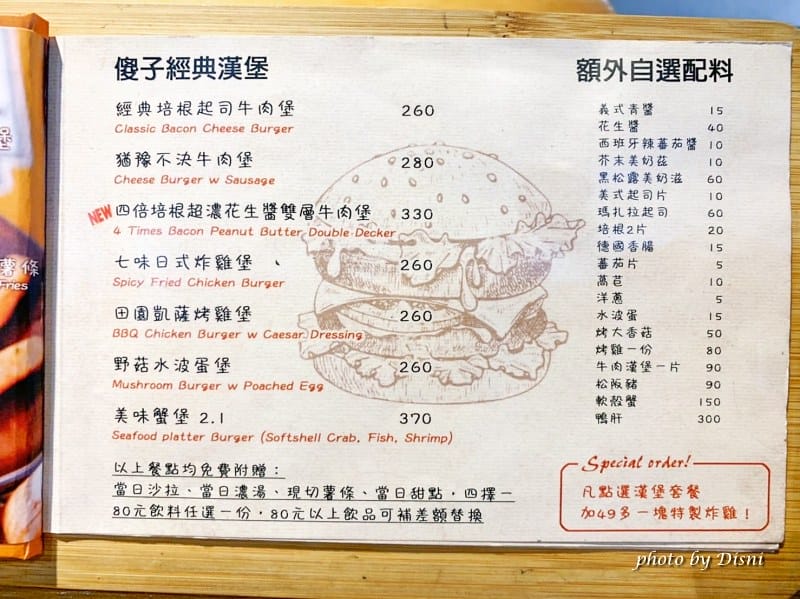 傻子經典漢堡
經典培根起司牛肉堡 260
Classic Bacon Cheese Burger
猶豫不決牛肉堡 280
Cheese Burger w Sausage
NEW 四倍培根超濃花生醬雙層牛肉堡 330
4 Times Bacon Peanut Butter Double Decker
七味日式炸雞堡 260
Spicy Fried Chicken Burger
田園凱薩烤雞堡 260
BBQ Chicken Burger w Caesar Dressing
野菇水波蛋堡 260
Mushroom Burger w Poached Egg
美味蟹堡 2.1 370
Seafood platter Burger (Softshell Crab, Fish, Shrimp)
以上餐點均免費附贈：
當日沙拉、當日濃湯、現切薯條、當日甜點，四擇一
80元飲料任選一份，80元以上飲品可補差額替換
額外自選配料
義式青醬 15
花生醬 40
西班牙辣蕃茄醬 10
芥末美奶茲 10
黑松露美奶滋 60
美式起司片 10
瑪扎拉起司 60
培根2片 20
德國香腸 15
蕃茄片 5
萵苣 10
洋蔥 5
水波蛋 15
烤大香菇 50
烤雞一份 80
牛肉漢堡一片 90
松阪豬 90
軟殼蟹 150
鴨肝 300
Special order!
凡點選漢堡套餐
加49多一塊特製炸雞！
堡
薯條
Fries
photo by Disni